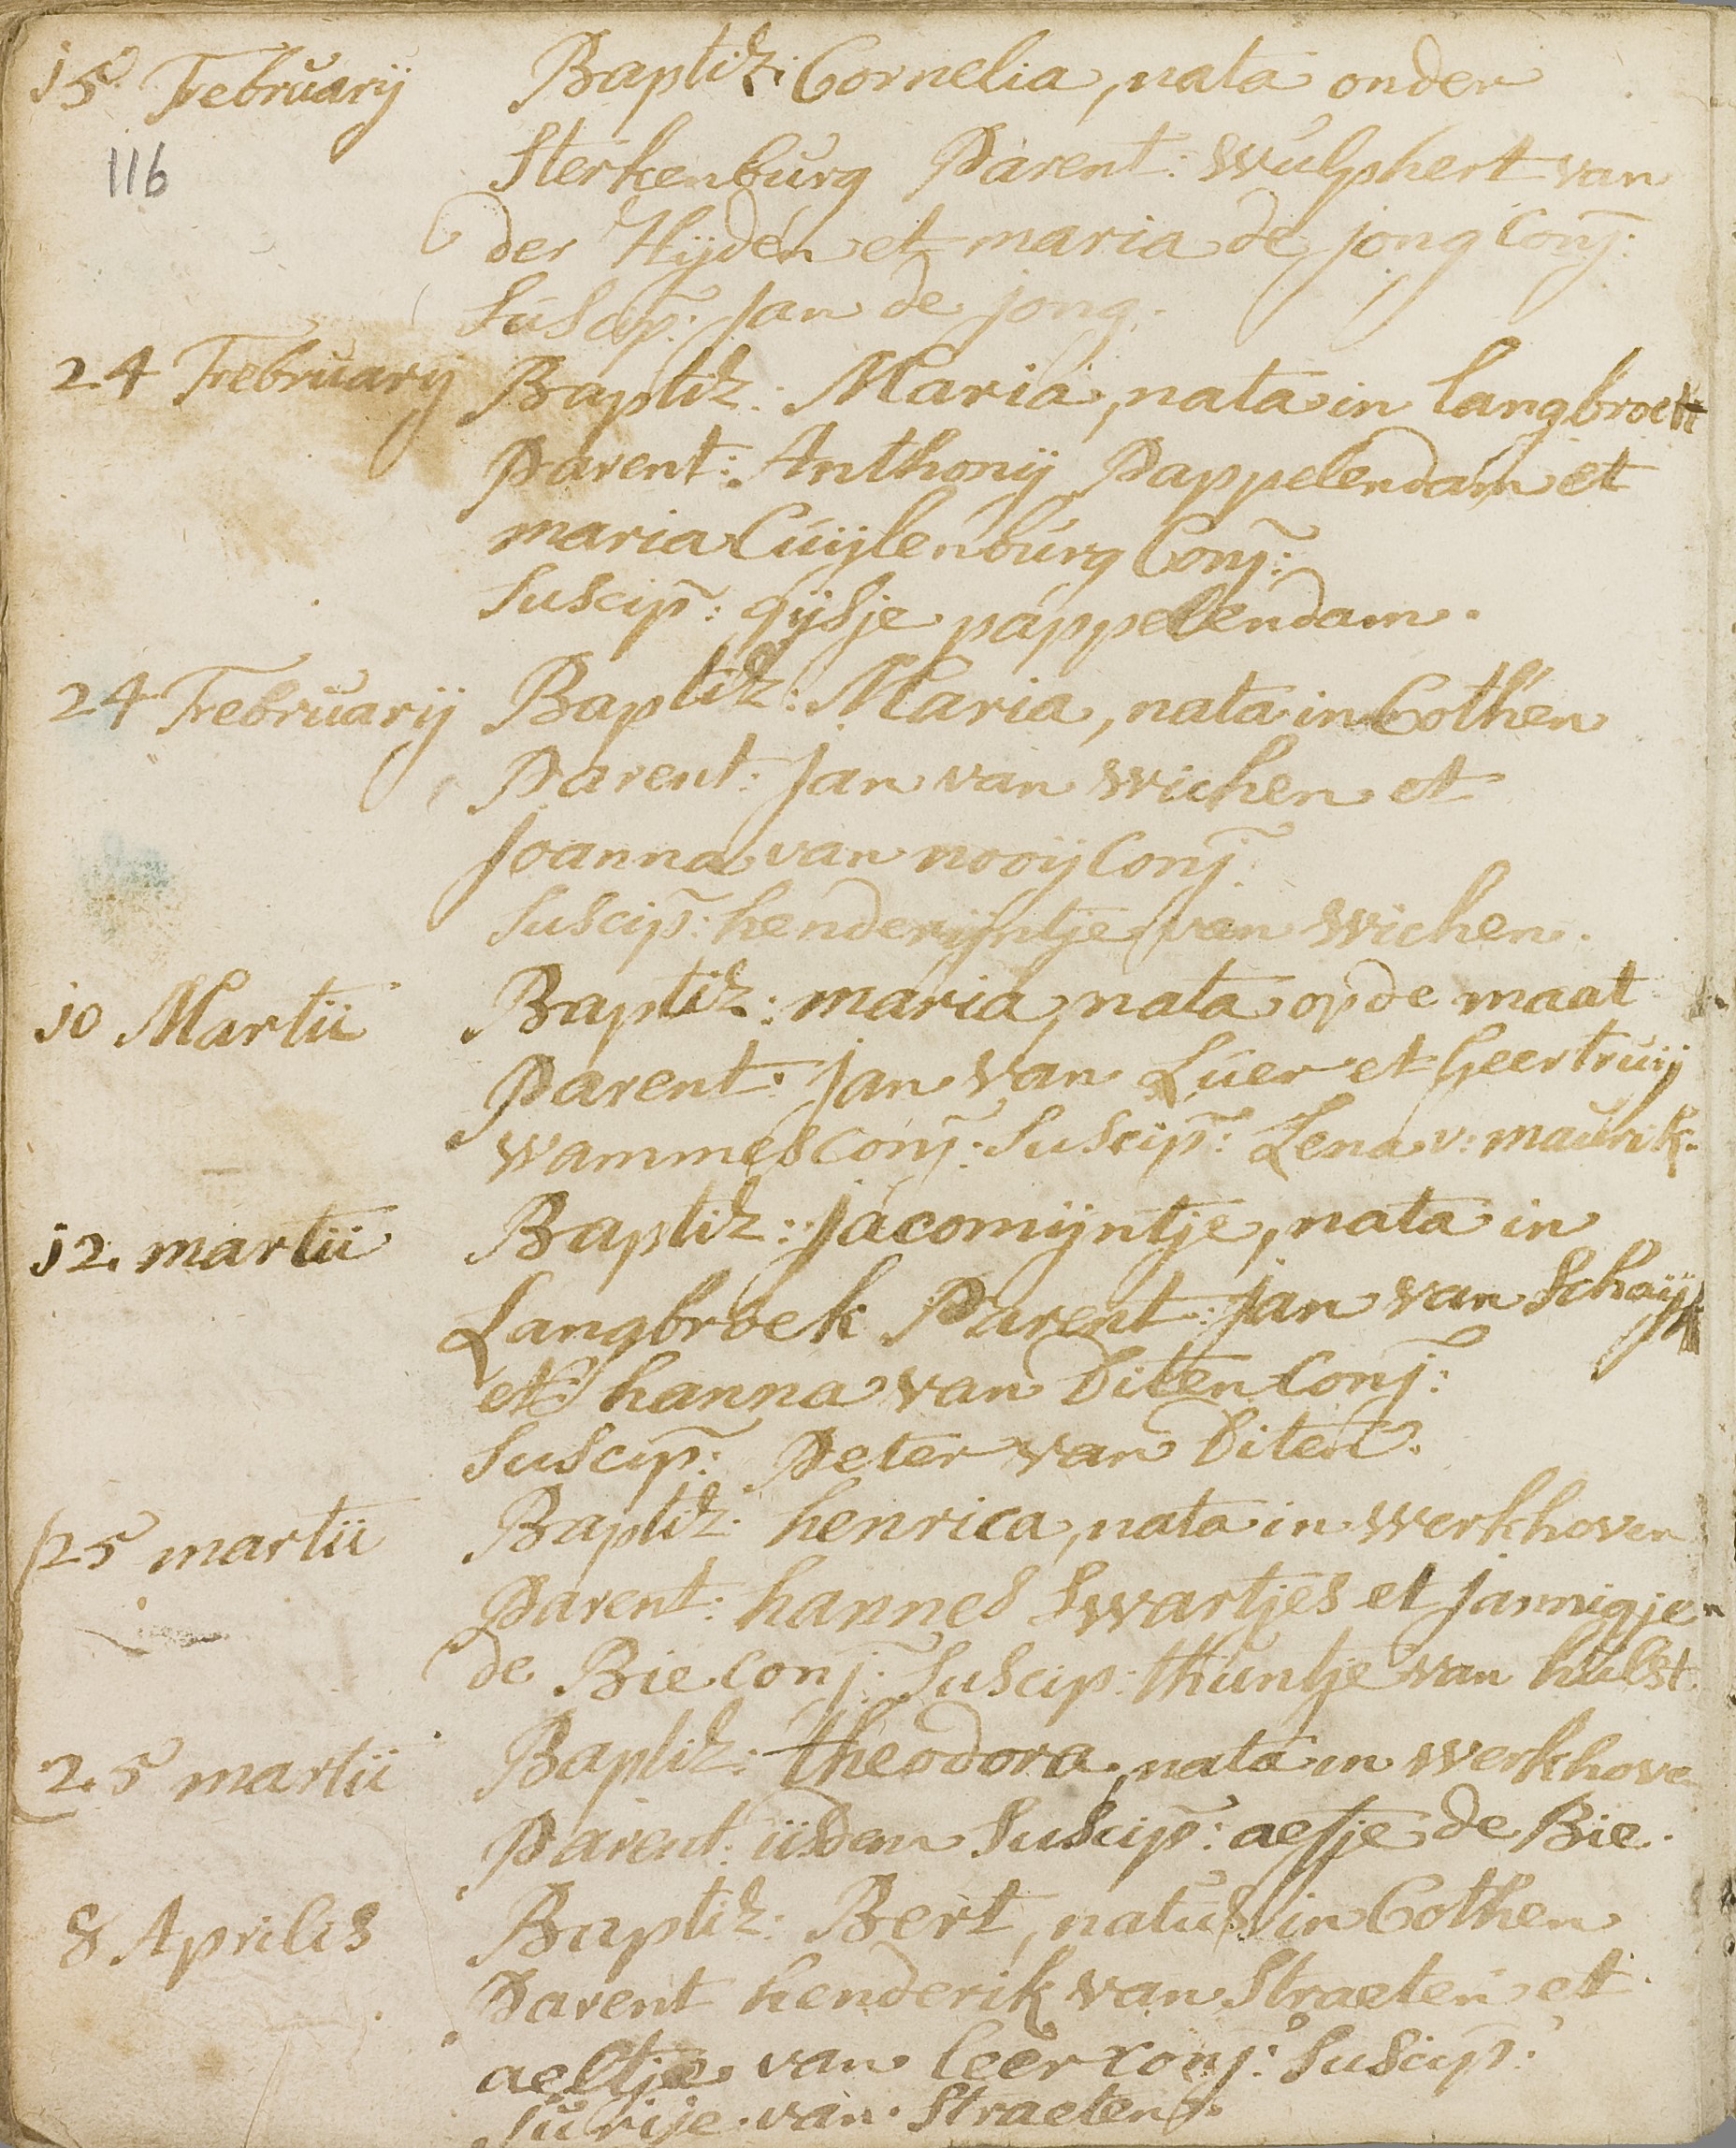 15 Februarij Baptiz: Cornelia, nata onder
116
Sterkenburg Parent: Wulphert van
der Hijden et maria de jong Conj:
Suscip: Jan de jong.
24 Februarij Baptiz: Maria, nata in langbroek
Parent: Anthonij Pappelendam et
maria Cuijlenburg Conj:
Suscip: gijsje pappelendam.
24 Februarij Baptiz: Maria, nata in Cothen
Parent: Jan van Wichen et
Joanna van nooij Conj:
Suscip: henderijntje van Wichen.
10 Martii Baptiz: maria, nata op de maat
Parent: Jan van Luer et geertruij
wammes conj: Suscip: Lena v: maurik.
12. martii Baptiz: Jacomijntje, nata in
Langbroek Parent: Jan van Schaijk
et hanna van Diten Conj:
Suscip: Peter van Diten.
25 martii Baptiz: henrica, nata in werkhoven
Parent: hannes Swartjes et Jannigje
de Bie conj: Suscip: thuntje van hulst
25 martii Baptiz: theodora, nata in werkhove
Parent: iisdem Suscip: aeltje de Bie.
8 Aprilis Baptiz: Bert, natus in Cothen
Parent henderik van Straeten et
aeltje van leer conj: Suscip:
van Straeten.